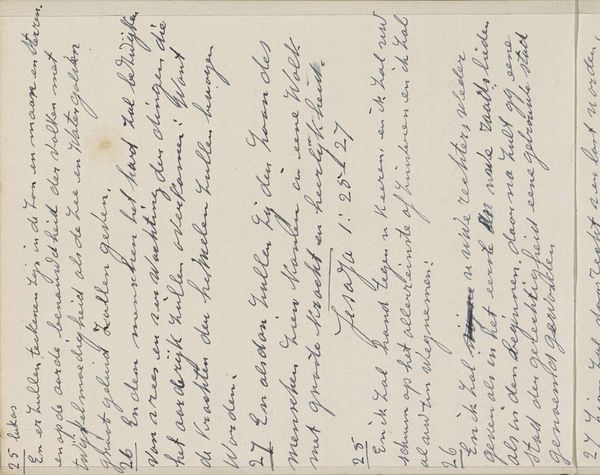 25 lukas
En er zullen tekenen zijn in de zon en maan en sterren.
en op de aarde benauwdheid der volken met
twijfelmoedigheid als de zee en watergolven
groot geluid zullen geven.
26 En dem menschen het hart zal bezwijken
van vrees en verwachting der dingen die
het aardrijk zullen overkomen! Want
de krachten der hemelen zullen bewogen
worden.
27 En als dan zullen zij den zoon des
menschen zien komen in eene wolk
met groote kracht en heerlijkheid.
Jesaja 1: 25-27
25
En ik zal hand tegen u keeren, en ik zal uw
schuim op het allerreinste afzuiveren en ik zal
al uw tin wegnemen!
26
En ik zal u uwe rechters weder
geven als in het eerste en uwe raadslieden
als in den beginnen, daarna zult gij eene
stad der gerechtigheid eene getrouwe stad
genoemd worden
27 Zion zal door recht verlost worden,